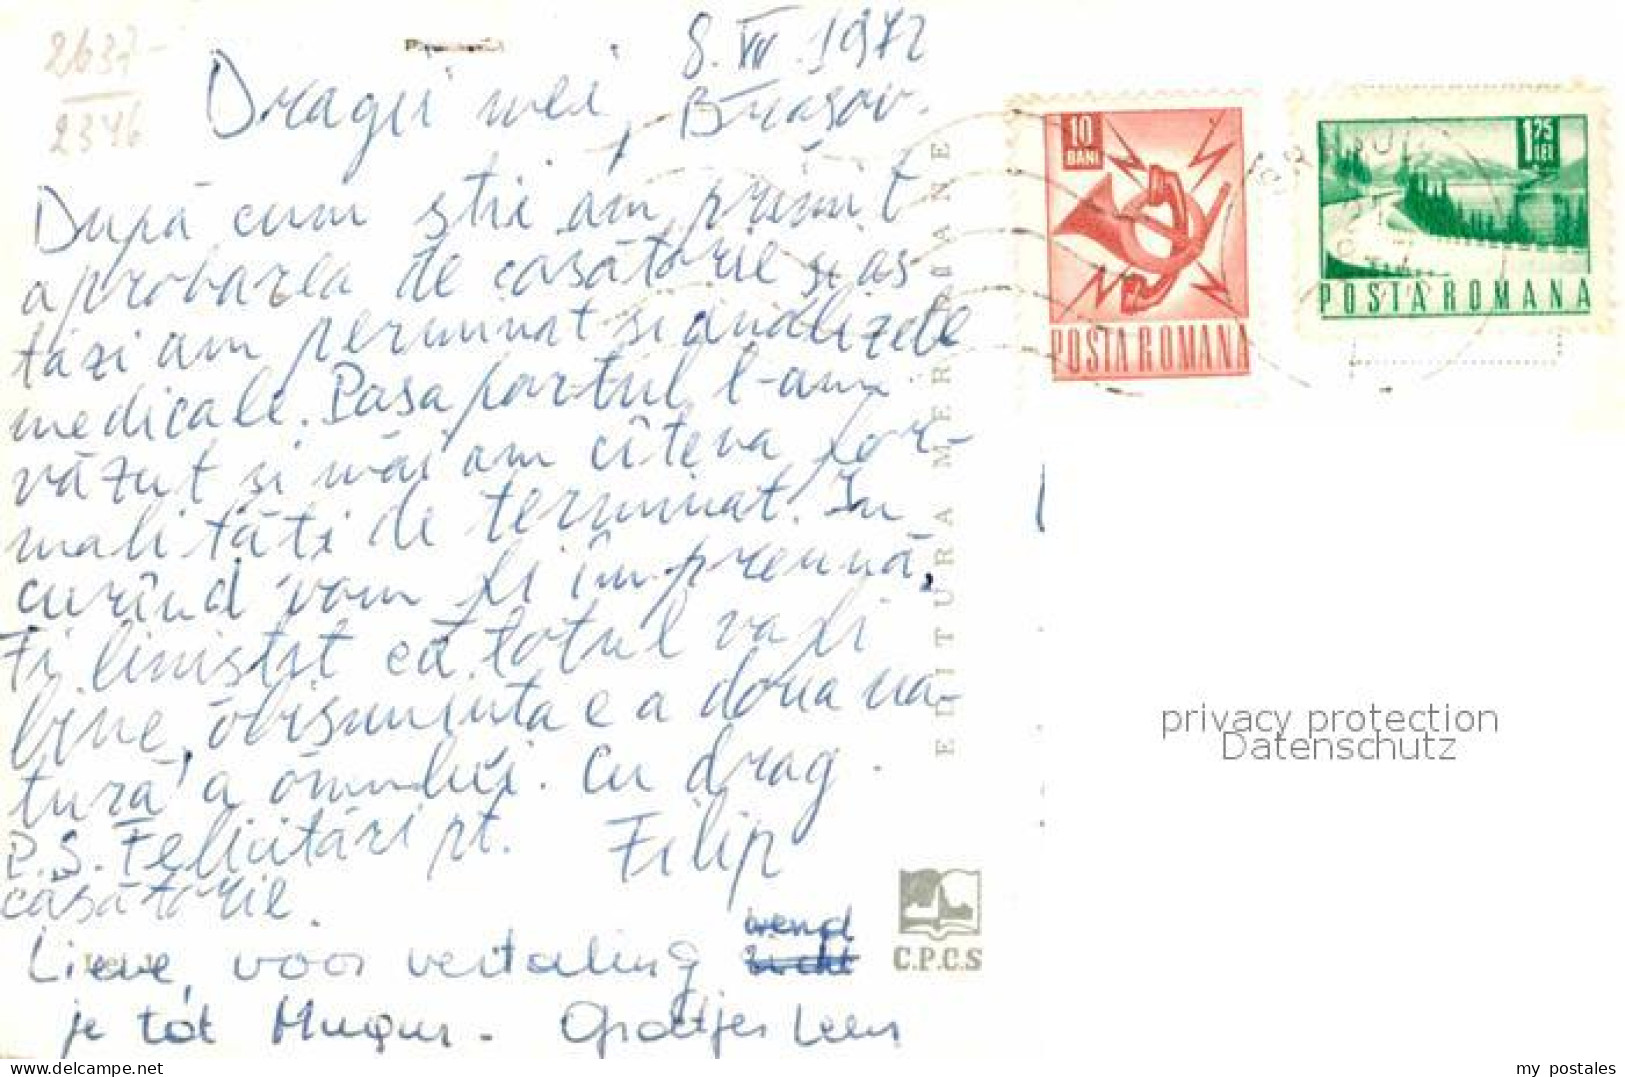 2637-
2346
8.VII.1972
Dragii mei, Brașov.
După cum știi am primit
aprobarea de casătorie și as
tăzi am terminat si analizele
medicale. Pasaportul l-am
văzut si mai am cîteva for-
malități de terminat. In
curînd vom fi împreună,
Fi linistit că totul va fi
bine, obisnuinta e a doua na-
tură a omului. Cu drag.
P.S. Felicitări pt. Filip
căsătorie.
Lieve, voor vertaling wend
je tot Mugur. Groetjes Leen
EDITURA MERIDIANE
C.P.C.S
10
BANI
POSTA ROMANA
1,25
LEI
POSTA ROMANA
privacy protection
Datenschutz
my_postales